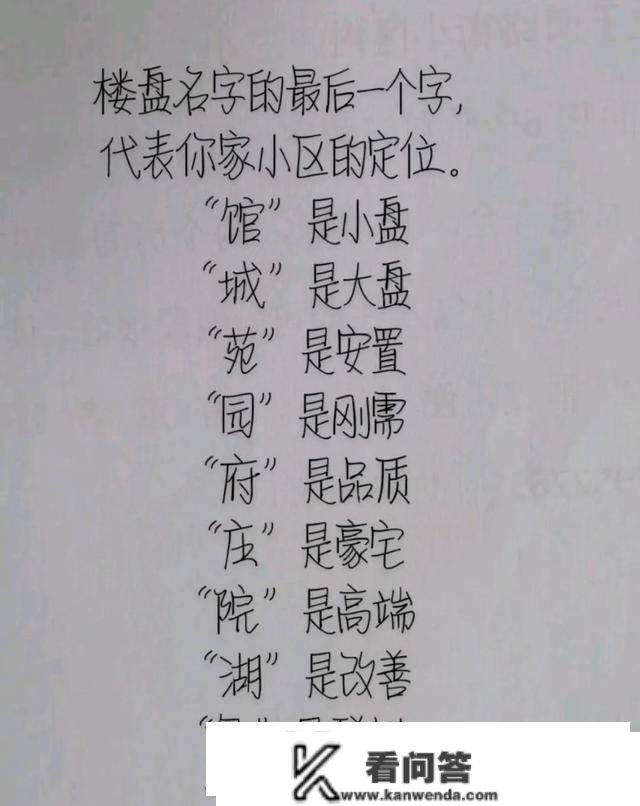 楼盘名字的最后一个字，
代表你家小区的定位。
“馆” 是小盘
“城” 是大盘
“苑” 是安置
“园” 是刚需
“府” 是品质
“庄” 是豪宅
“院” 是高端
“湖” 是改善
看问答
www.kanwenda.com